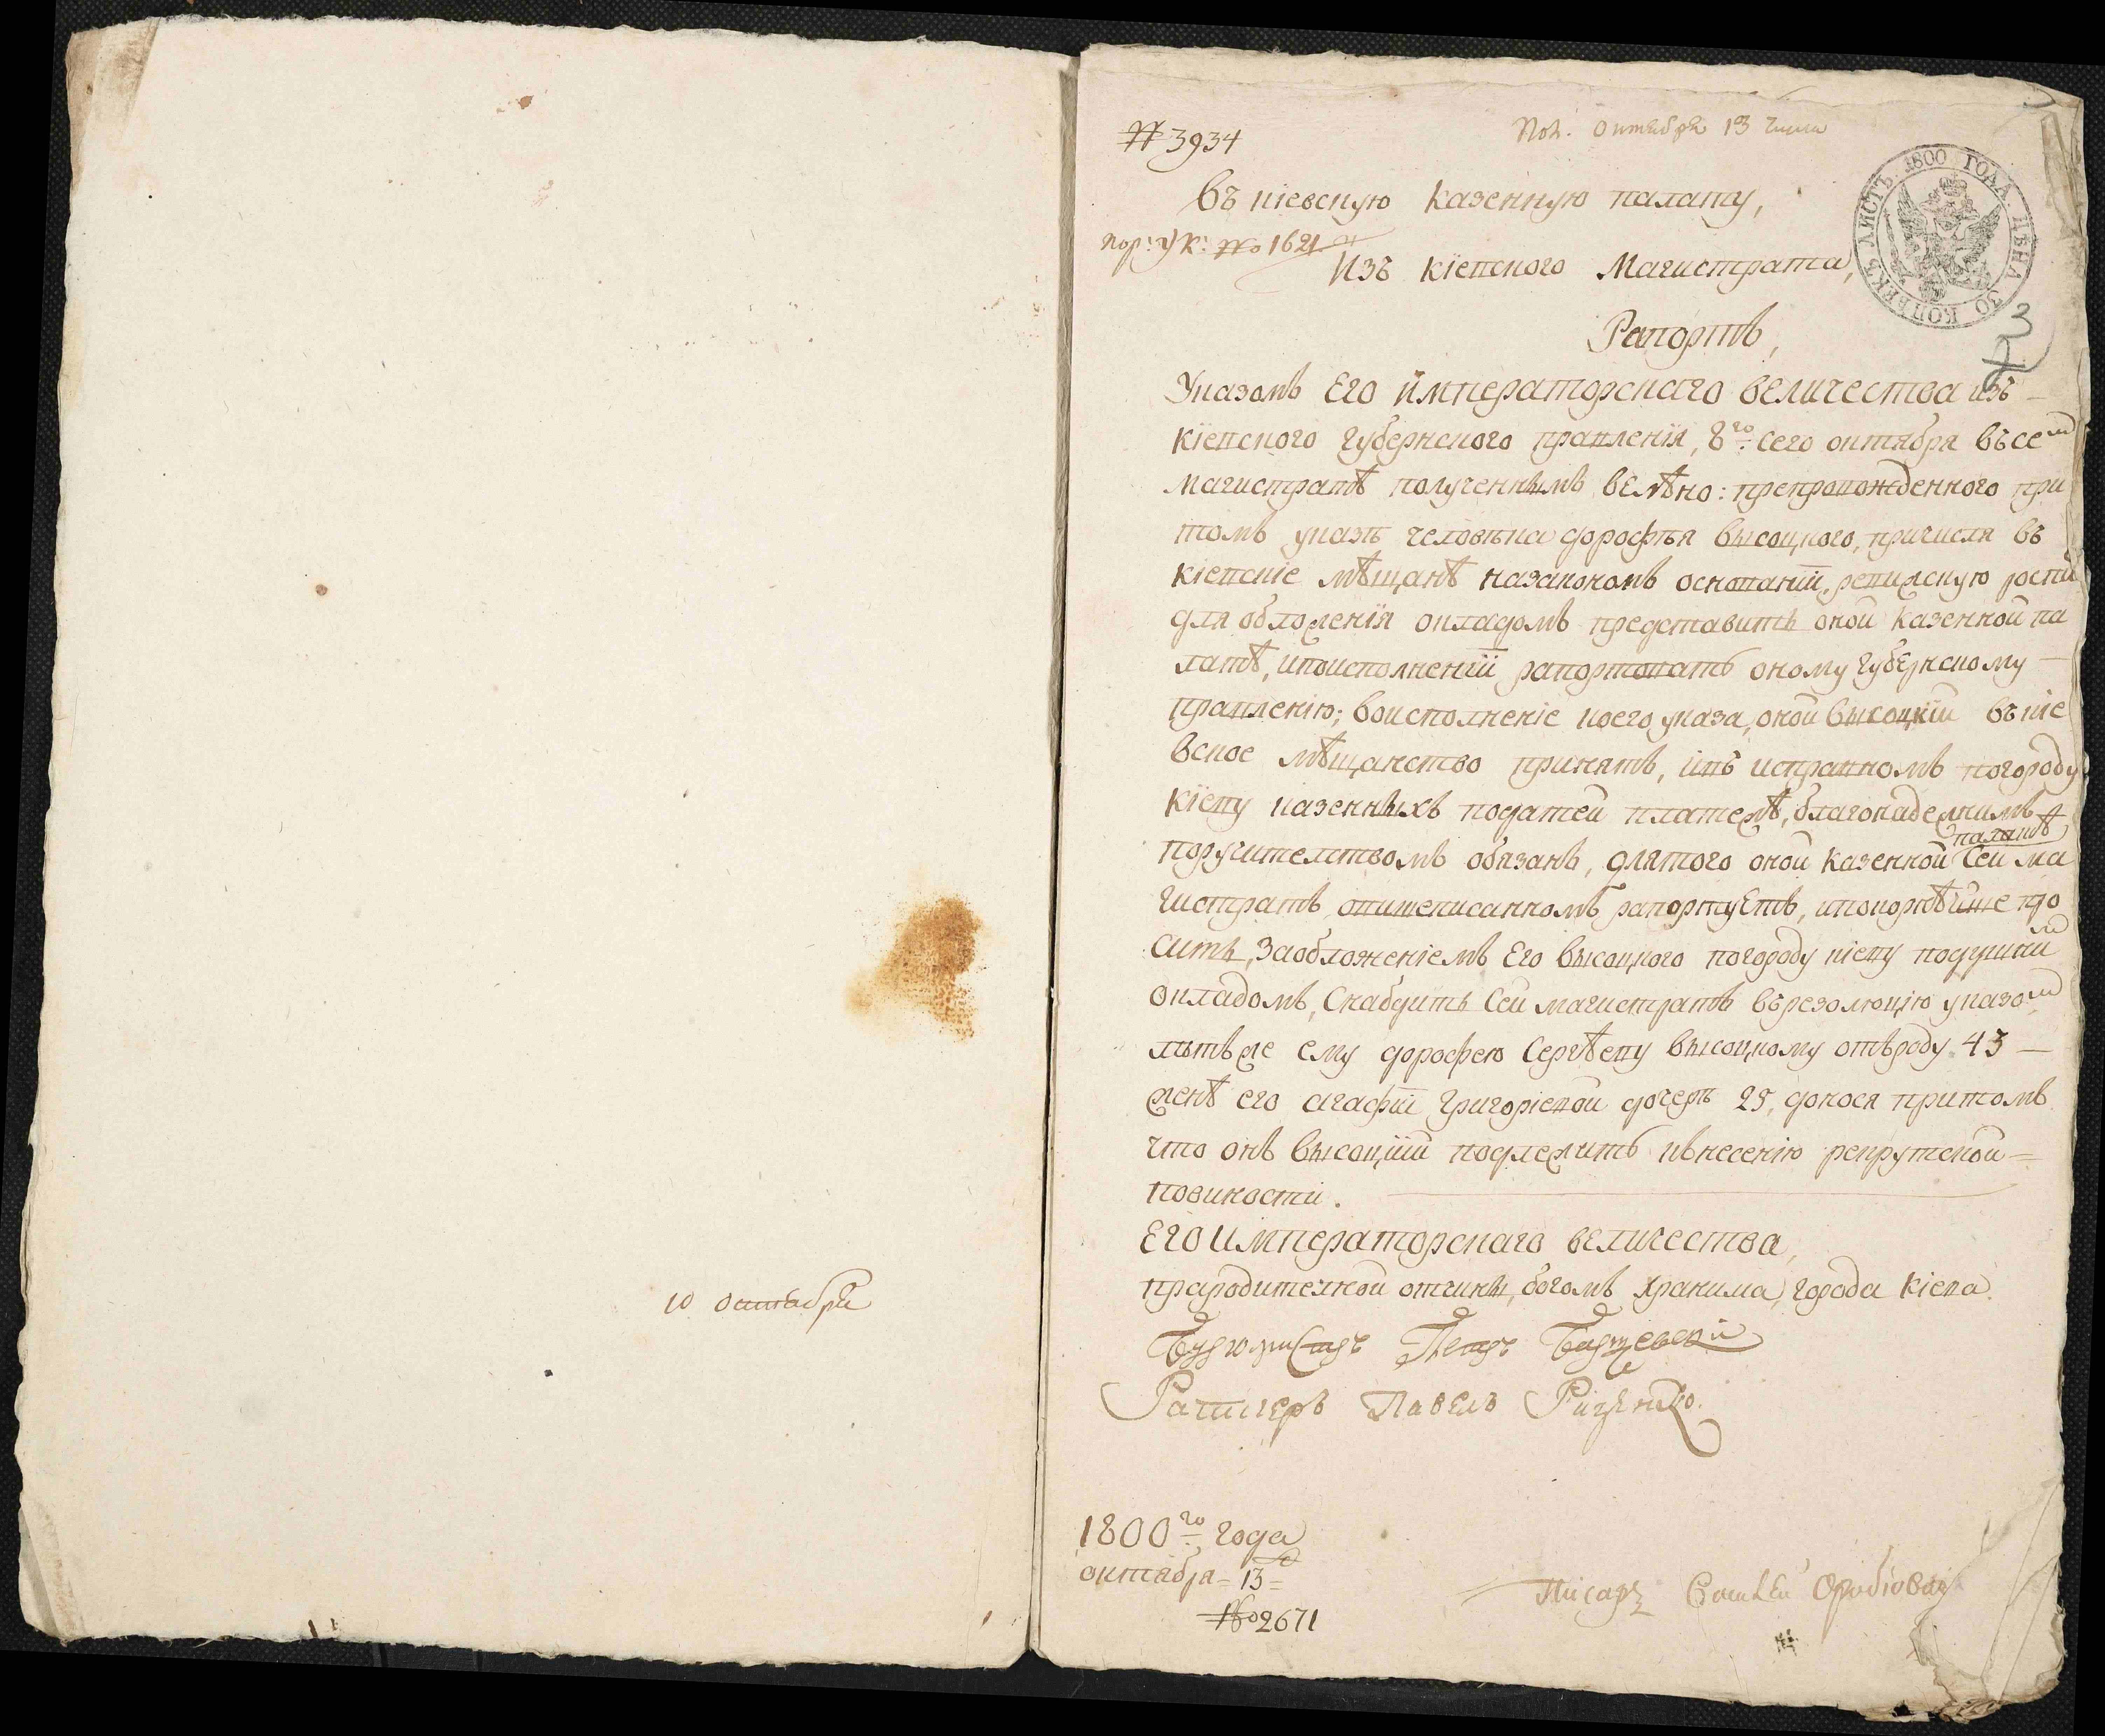 10 октября
№ 3934
Пол. октября 13 числа
въ кіевскую казенную палату,
пор: ук: №о 1621
Изъ кіевского Магистрата,
1800 ГОДА. ЦѢНА 30 КОПѢЕКЪ ЛИСТЪ.
3
Рапортъ,
Указомъ Его императорскаго величества изъ
кіевского губернского правленія, 8го сего октября въ сем
магистратѣ полученнымъ велѣно: препровожденного при
томъ указѣ человѣка дорофѣя высоцкого, причисля въ
кіевскіе мѣщанѣ назакономъ основаніи, ревижскую
для обложенія окладомъ представить оной казенной па
латѣ, ипоисполненіи рапортовать оному губернскому
правленію; воисполненіе коего указа, оной высоцкіи въ кіе
вское мѣщанство принятъ, ивъ исправномъ погороду
кіеву казенныхъ податей платежѣ, благонадежнимъ
поручителствомъ обязанъ, длятого оной казенной палатѣ сей ма
гистратъ опишеписанномъ рапортуетъ, ипокорнѣйше про
ситъ, Заобложеніемъ Его высоцкого погороду кіеву подушним
окладомъ, Снабдить Сей магистратъ върезолюцію указом
лѣтъ же ему дорофею Сергѣеву высоцкому отъроду 43
женѣ его агафіи григоріевой дочерѣ 25, донося притомъ
что онъ высоцкій подлежитъ квнесенію рекрутской
повиности.
Его императорскаго величества,
прародителной отчины, богомъ хранима, города кіева
Бургомистръ Петръ Барщевскій
Ратгеръ Павелъ
1800го года
октября 13
№о2671
Писарь